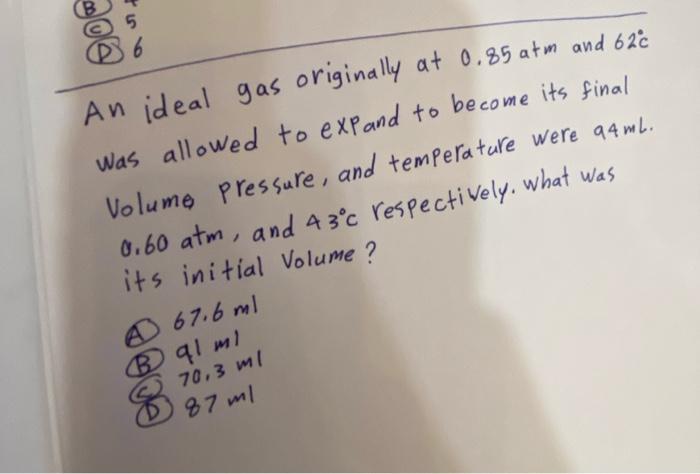 B
C 5
D 6
An ideal gas originally at 0.85 atm and 62°c
was allowed to expand to become its final
Volume, pressure, and temperature were 94 mL.
0.60 atm, and 43°c respectively. what was
its initial Volume ?
A 67.6 ml
B 91 ml
C 70.3 ml
D 87 ml